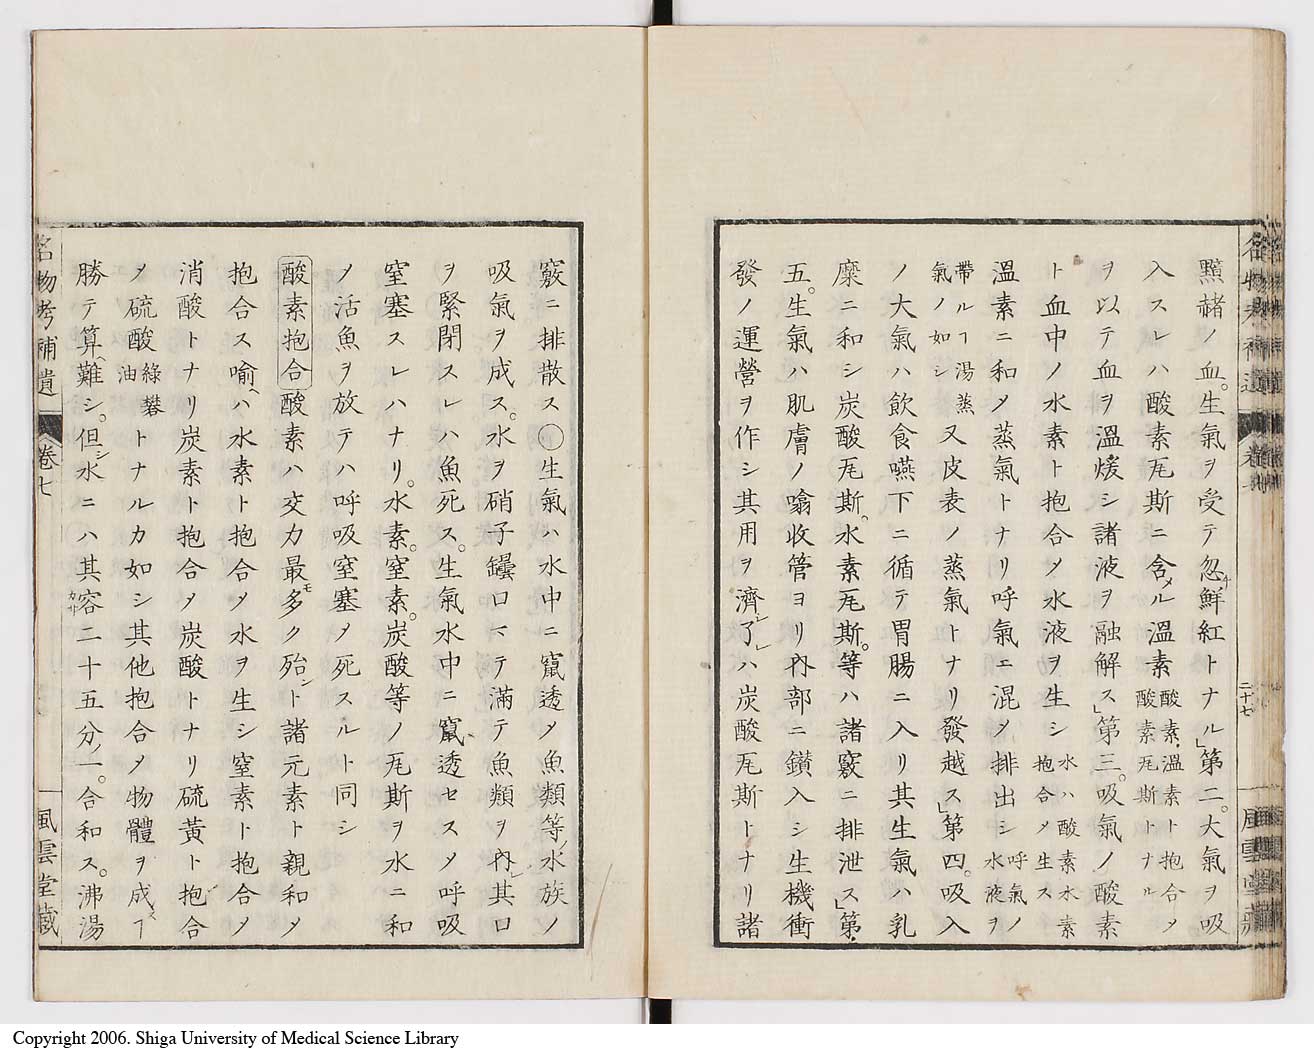 黯赭ノ血。生氣ヲ受テ忽チ鮮紅トナル」第二。大氣ヲ吸
入スレハ酸素瓦斯ニ含メル溫素 酸素、溫素ト抱合メ 酸素瓦斯トナル
ヲ以テ血ヲ溫煖シ諸液ヲ融解ス」第三。吸氣ノ酸素
ト血中ノ水素ト抱合メ水液ヲ生シ 水ハ酸素水素 抱合メ生ス
溫素ニ和メ蒸氣トナリ呼氣エ混メ排出シ 呼氣ノ 水液ヲ
帶ルヿ湯蒸 氣ノ如シ 又皮表ノ蒸氣トナリ發越ス」第四。吸入
ノ大氣ハ飲食嚥下ニ循テ胃腸ニ入リ其生氣ハ乳
糜ニ和シ炭酸瓦斯。水素瓦斯。等ハ諸竅ニ排泄ス」第
五。生氣ハ肌膚ノ噏收管ヨリ內部ニ鑚入シ生機衝
發ノ運營ヲ作シ其用ヲ濟シ了レハ炭酸瓦斯トナリ諸
名物考補遺
卷七
二十七
風雲堂藏
竅ニ排散ス○生氣ハ水中ニ竄透メ魚類等ノ水族ノ
吸氣ヲ成ス。水ヲ硝子罎口マテ滿テ魚類ヲ內レ其口
ヲ緊閉スレハ魚死ス。生氣水中ニ竄透セスメ呼吸
窒塞スレハナリ。水素。窒素。炭酸等ノ瓦斯ヲ水ニ和
メ活魚ヲ放テハ呼吸窒塞メ死スルト同シ
酸素抱合 酸素ハ交力最モ多ク殆ント諸元素ト親和メ
抱合ス喻ヘハ水素ト抱合メ水ヲ生シ窒素ト抱合メ
消酸トナリ炭素ト抱合メ炭酸トナリ硫黃ト抱合
メ硫酸 綠礬 油 トナルカ如シ其他抱合メ物體ヲ成スヿ
勝テ算ヘ難シ。但シ水ニハ其容カサ二十五分ノ一。合和ス。沸湯
名物考補遺
卷七
風雲堂藏
Copyright 2006. Shiga University of Medical Science Library